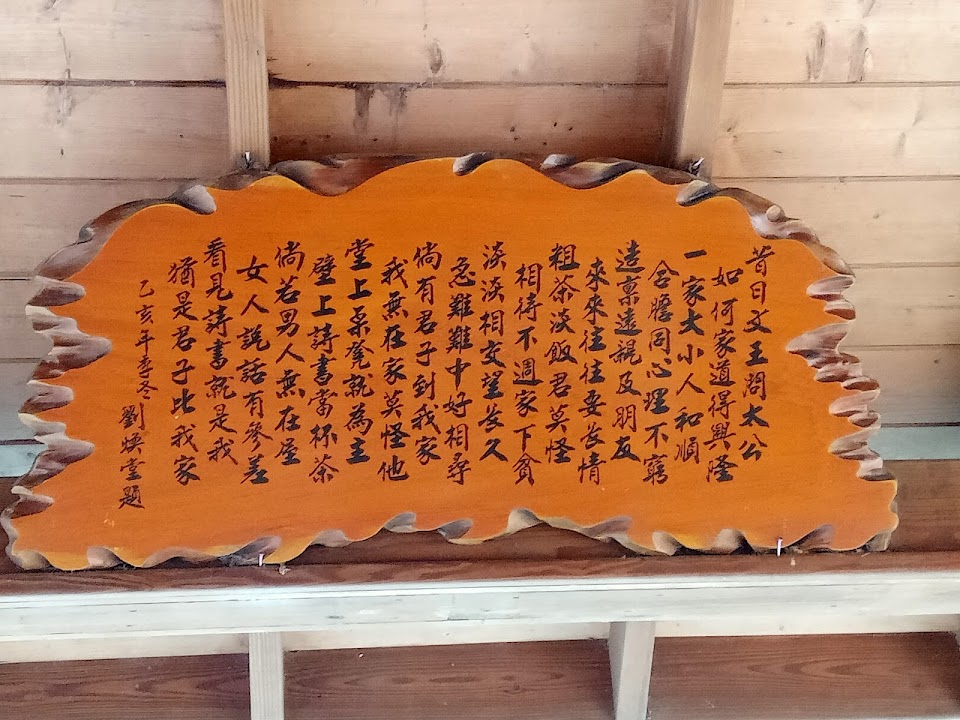 昔日文王問太公
如何家道得興隆
一家大小人和順
合膽同心理不窮
遠禀遠親及朋友
來來往往要長情
粗茶淡飯君莫怪
相待不週家下貧
淡淡相交望長久
急難難中好相尋
倘有君子到我家
我無在家莫怪他
堂上桌凳就為主
壁上詩書當杯茶
倘若男人無在屋
女人說話有參差
看見詩書就是我
猶是君子比我家
乙亥年季冬 劉煥堂題